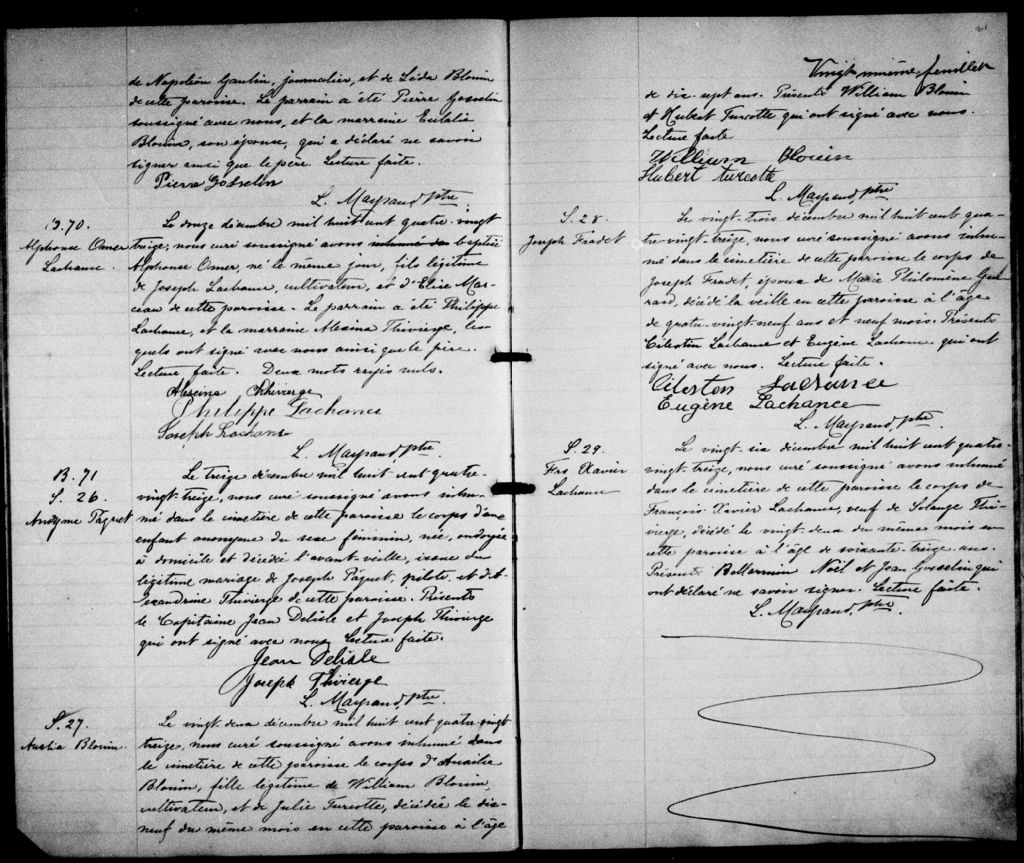 de Napoléon Gaulin, journalier, et de Léda Blouin
de cette paroisse. Le parrain a été Pierre Gosselin
soussigné avec nous, et la marraine Eulalie
Blouin, son épouse, qui a déclaré ne savoir
signer ainsi que le père. Lecture faite.
Pierre Gosselin
L. Mayrand, ptre.
B. 70.
Alphonse Omer
Lachance.
Le douze décembre mil huit cent quatre-vingt
treize, nous curé soussigné avons inhumé dans baptisé
Alphonse Omer, né le même jour, fils légitime
de Joseph Lachance, cultivateur, et d'Elise Mar-
ceau de cette paroisse. Le parrain a été Philippe
Lachance, et la marraine Alexina Thivierge, les-
quels ont signé avec nous ainsi que le père.
Lecture faite. Deux mots rayés nuls.
Alexina Thivierge
Philippe Lachance
Joseph Lachance
L. Mayrand, ptre.
B. 71
S. 26.
Anonyme Pâquet
Le treize décembre mil huit cent quatre-
vingt-treize, nous curé soussigné avons inhu-
mé dans le cimetière de cette paroisse le corps d'une
enfant anonyme du sexe féminin, née, ondoyée
à domicile et décédée l'avant-veille, issue du
légitime mariage de Joseph Pâquet, pilote, et d'A-
lexandrine Thivierge de cette paroisse. Présents
le Capitaine Jean Delisle et Joseph Thivierge
qui ont signé avec nous. Lecture faite.
Jean Delisle
Joseph Thivierge
L. Mayrand, ptre.
S. 27.
Blouin.
Le vingt-deux décembre mil huit cent quatre-vingt
treize, nous curé soussigné avons inhumé dans
le cimetière de cette paroisse le corps d'Aurélie
Blouin, fille légitime de William Blouin,
cultivateur, et de Julie Turcotte, décédée le dix-
neuf du même mois en cette paroisse à l'âge
Vingt unième feuillet
de dix-sept ans. Présents William Blouin
et Hubert Turcotte qui ont signé avec nous.
Lecture faite
William Blouin
Hubert turcotte
L. Mayrand ptre
S. 28.
Joseph Fradet
Le vingt-trois décembre mil huit cent qua-
tre-vingt-treize, nous curé soussigné avons inhu-
mé dans le cimetière de cette paroisse le corps de
Joseph Fradet, époux de Marie Philomène Gué-
rard, décédé la veille en cette paroisse à l'âge
de quatre-vingt-neuf ans et neuf mois. Présents
Célestin Lachance et Eugène Lachance qui ont
signé avec nous. Lecture faite.
Célestin Lachance
Eugène Lachance
L. Mayrand, ptre.
S. 29.
Frs Xavier
Lachance
Le vingt-six décembre mil huit cent quatre-
vingt-treize, nous curé soussigné avons inhumé
dans le cimetière de cette paroisse le corps de
François Xavier Lachance, veuf de Solange Thi-
vierge, décédé le vingt-deux du même mois en
cette paroisse à l'âge de soixante-treize ans.
Présents Bellarmin Noël et Jean Gosselin qui
ont déclaré ne savoir signer. Lecture faite.
L. Mayrand, ptre.